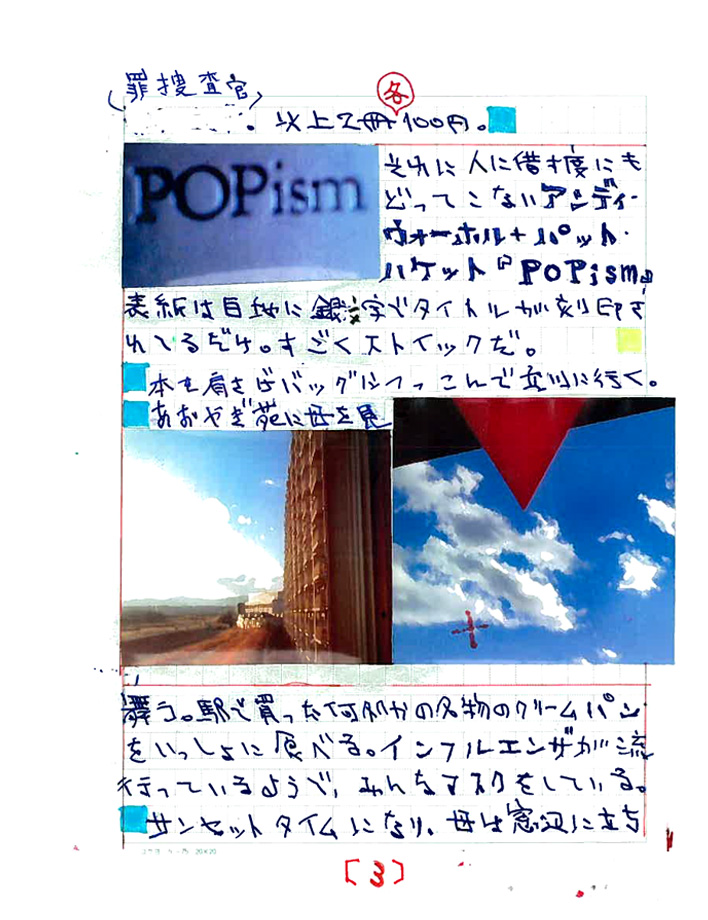 (罪捜査官)
各
。以上2冊100円。
POPism
それに人に借す度にも
どってこないアンディ・
ウォーホル+パット・
ハケット『POPism』
表紙は白地に銀文字でタイトルが刻印さ
れてるだけ。すごくストイックだ。
本を肩さげバッグにつっこんで立川に行く。
あおやぎ苑に母を見
舞う。駅で買った何処かの名物のクリームパン
をいっしょに食べる。インフルエンザが流
行っているようで、みんなマスクをしている。
サンセットタイムになり、母は窓辺に立ち
20×20
[3]